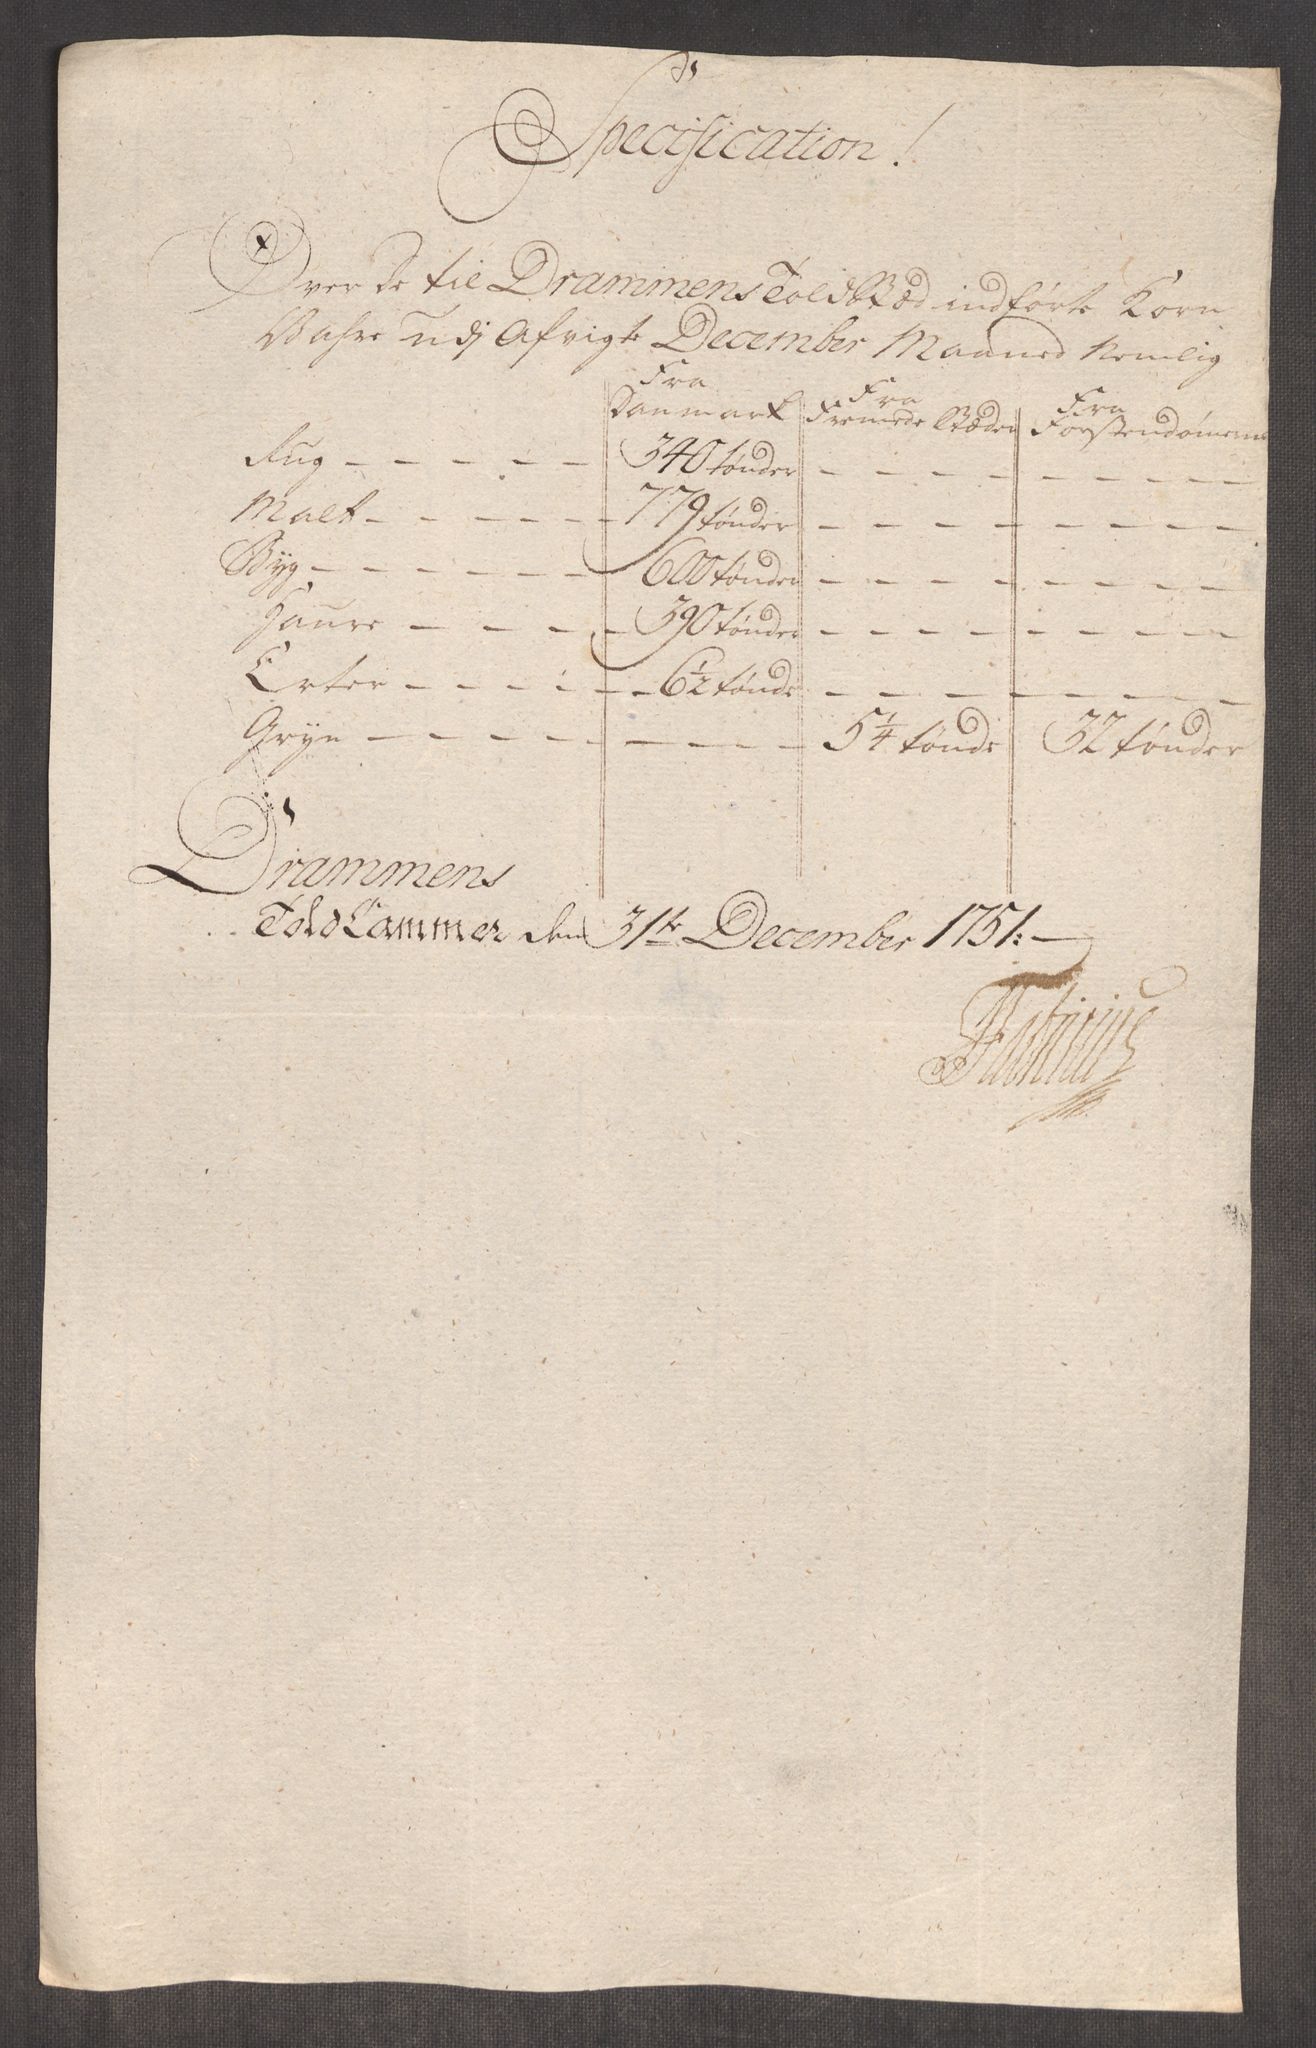 Specification!
Over de til Drammens ToldStæd indførte Korn
Vahre udj Afvigte December Maaned Nemlig
Fra Danmark Fra Fremede Stæder Fra Førstendømerne
Rug - - - - - 340 tønder - - - - - - - -
Malt - - - - - 779 tønder - - - - - - - -
Byg - - - - - - 600 tønder - - - - - - - -
Haure - - - - 390 tønder - - - - - - - -
Erter - - - - - 6½ tønde - - - - - - - -
Gryn - - - - - - - - 5¼ tønde 32 tønder
Drammens
Told Cammer den 31te December 1751:
Fabricius